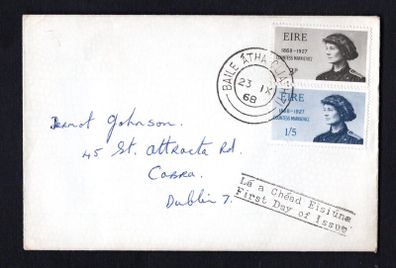 ÉIRE
1868-1927
COUNTESS MARKIEVICZ
3P
ÉIRE
1868-1927
COUNTESS MARKIEVICZ
1/5
BAILE ÁTHA CLIATH
23 IX
68
Dermot Johnson.
45 St. Attracta Rd.
Cabra.
Dublin 7.
Lá a Chéad Eisiúna
First Day of Issue